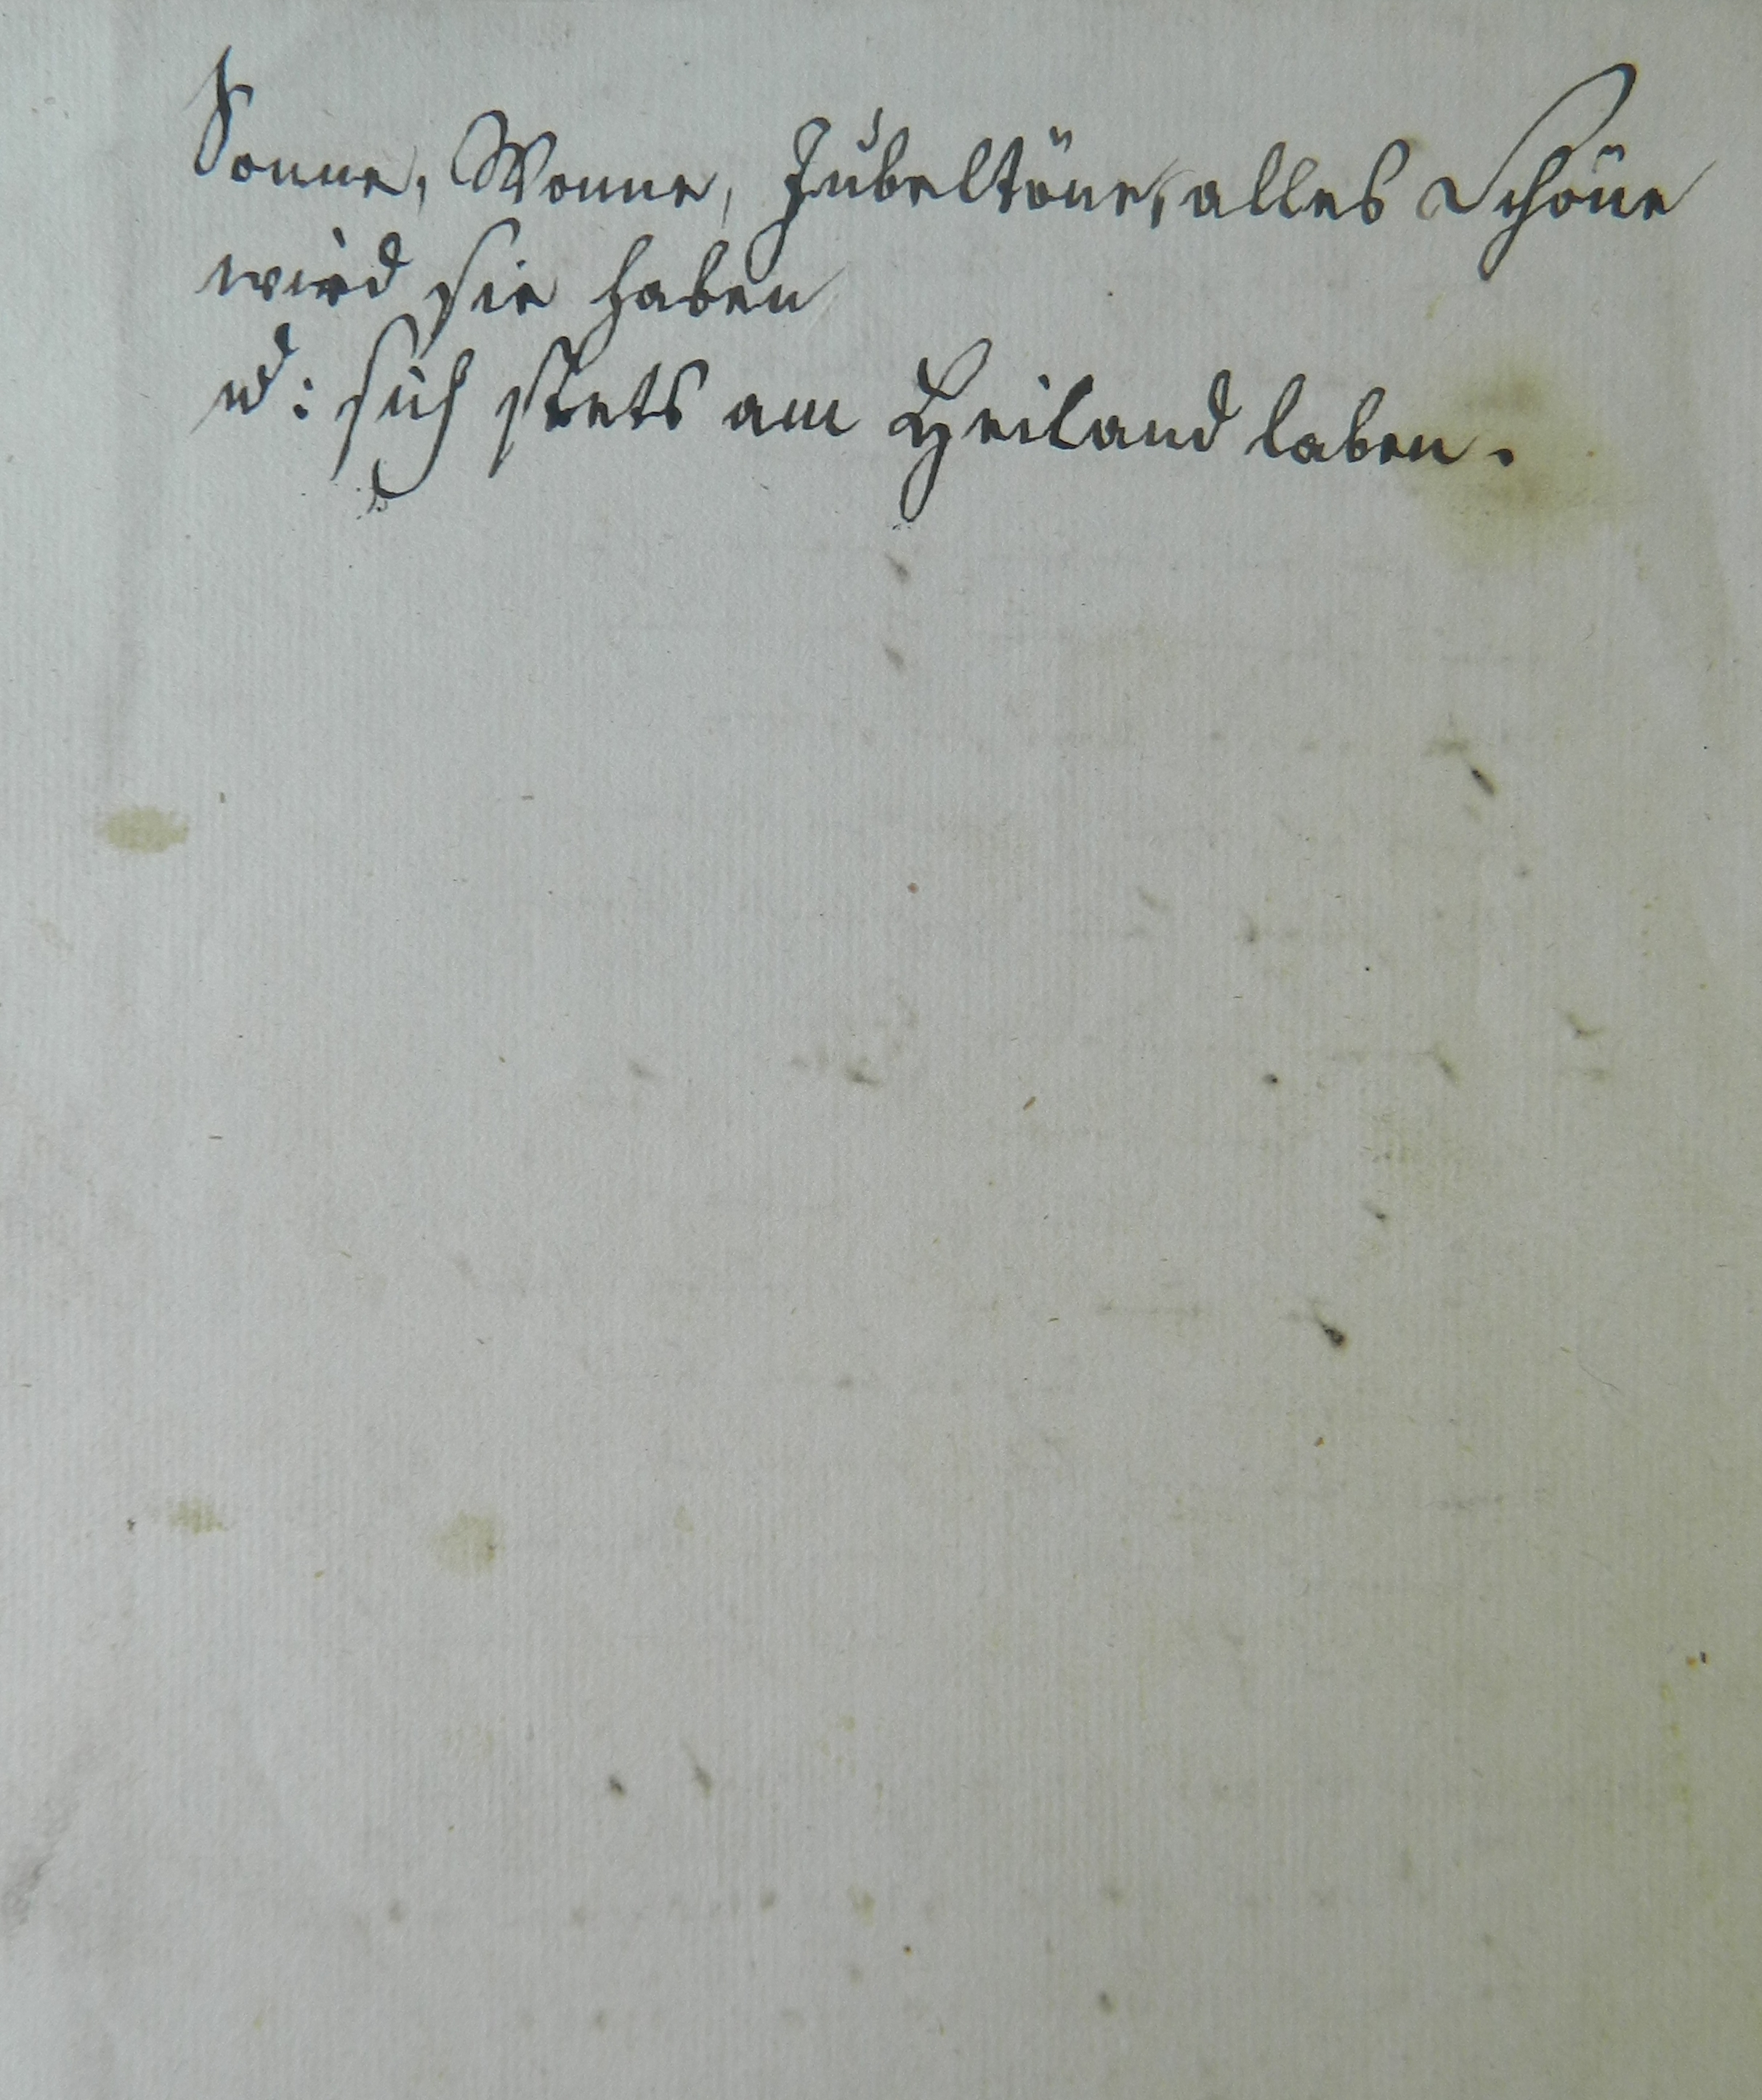 Sonne, Wonne, Jubeltöne, alles Schöne
wird sie haben
u: sich stets am Heiland laben.